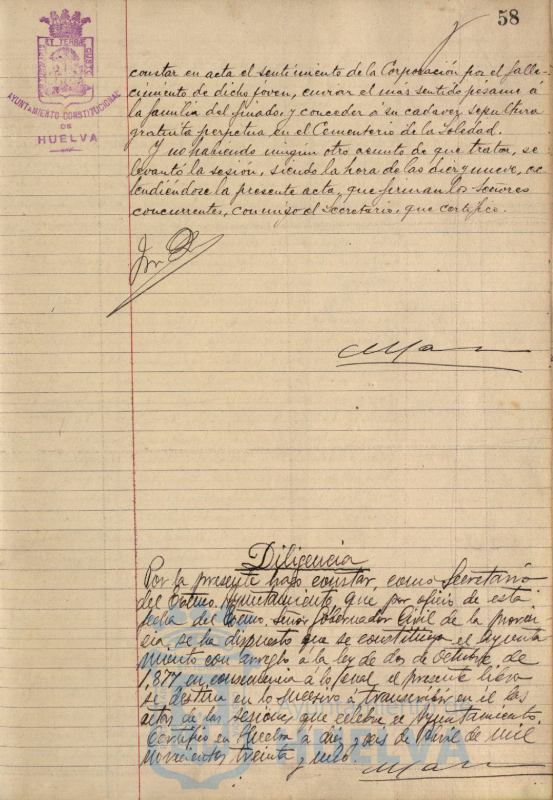 58
AYUNTAMIENTO CONSTITUCIONAL
DE
HUELVA
constar en acta el sentimiento de la Corporación por el falle-
cimiento de dicho joven, enviar el mas sentido pesame a
la familia del finado, y conceder á su cadaver sepultura
gratuita perpetua en el Cementerio de la Soledad.
Y no habiendo ningun otro asunto de que tratar, se
levantó la sesión, siendo la hora de las diez y nueve, ex-
tendiéndose la presente acta, que firman los Señores
concurrentes, conmigo el Secretario, que certifico.
Diligencia
Por la presente hago constar, como Secretario
del Excmo. Ayuntamiento, que por oficio de esta
fecha del Excmo. Señor Gobernador Civil de la provin-
cia, se ha dispuesto que se constituya el Ayunta-
miento con arreglo á la ley de dos de Octubre de
1.877 en consecuencia á lo cual el presente libro
se destina en lo sucesivo á transcribir en él las
actas de las sesiones que celebre el Ayuntamiento.
Certifico en Huelva á diez y seis de Abril de mil
novecientos treinta y uno.
HUELVA